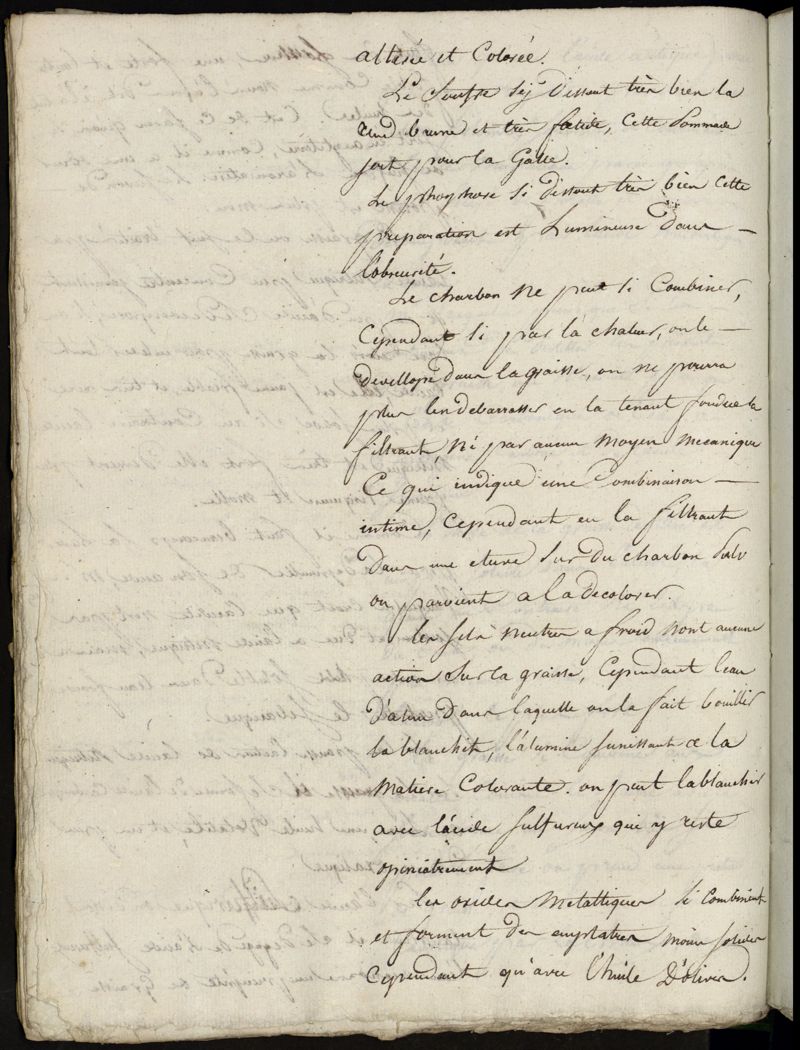 altérée et Colorée.
Le Souffre s'y Dissout très bien la
rend brune et très fœtide, Cette Pommade
sert pour la Galle.
Le phosphore si dissout très bien cette
preparation est Lumineuse Dans —
l'obscurité.
Le charbon ne peut si Combiner,
Cependant si par la chaleur, on le —
Devellope dans la graisse, on ne pourra
plus l'en debarrasser en la tenant fondue la
filtrant Ni par aucun Moyen Mecanique
Ce qui indique une Combinaison —
intime, Cependant en la filtrant
Dans une etuve sur du charbon Pulv
on parvient a la Decolorer.
les sels neutres a froid n'ont aucune
action sur la graisse, Cependant l'eau
D'alun Dans laquelle on la fait bouillir
la blanchit l'alumine s'unissant a la
Matiere Colorante. on peut la blanchir
avec l'acide sulfureux qui y reste
opiniatrement
les oxides Metalliques si combinent
et forment des emplatres moins solides
Cependant qu'avec l'huile D'olives.